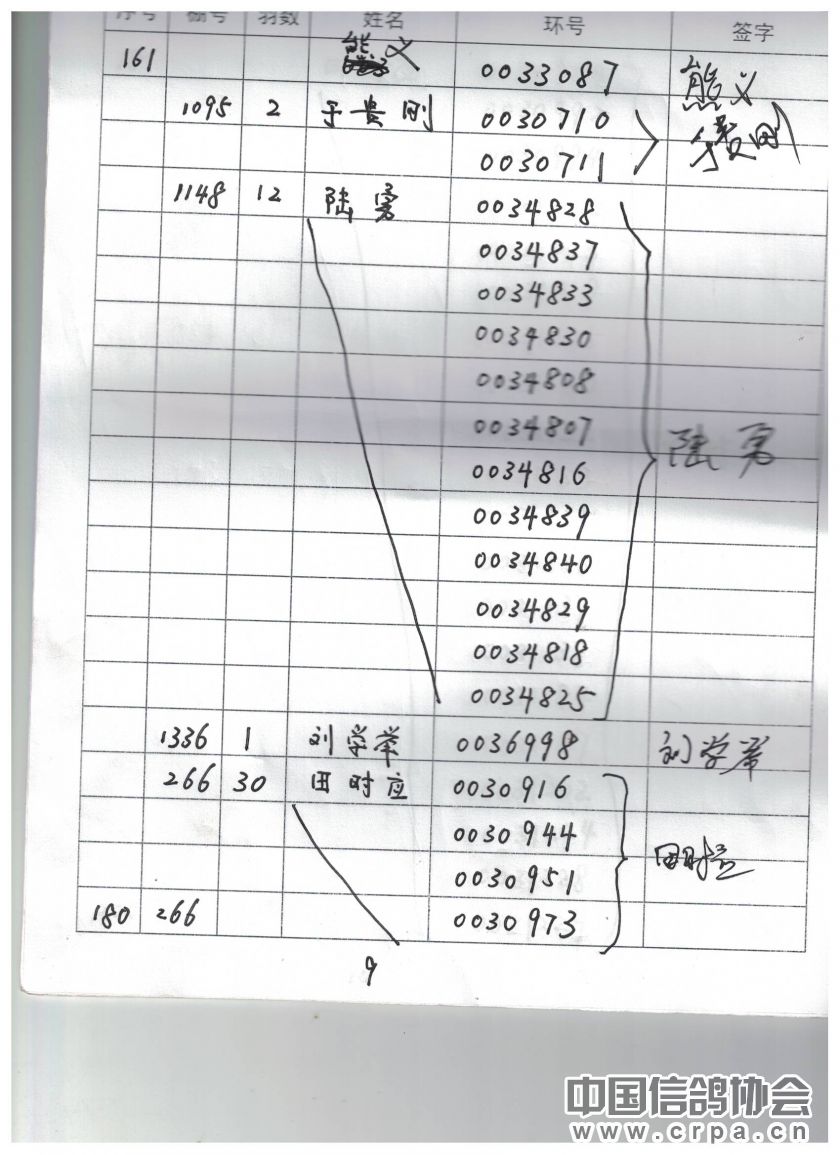 序号 棚号 羽数 姓名 环号 签字
161 熊义 0033087 熊义
1095 2 于贵刚 0030710 于贵刚
0030711
1148 12 陆勇 0034828
0034837
0034833
0034830
0034808
0034807 陆勇
0034816
0034839
0034840
0034829
0034818
0034825
1336 1 刘学举 0036998 刘学举
266 30 田时应 0030916
0030944
0030951 田时应
180 266 0030973
9
中国信鸽协会
www.crpa.cn